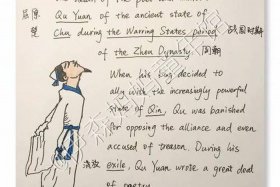 Qu Yuan of the ancient state of
屈原
Chu during the Warring States period 战国时期
楚
of the Zhou Dynasty 周朝
When his king decided to
ally with the increasingly powerful
state of Qin, Qu was banished
for opposing the alliance and even
accused of treason. During his
流放 exile, Qu Yuan wrote a great deal
of poetry